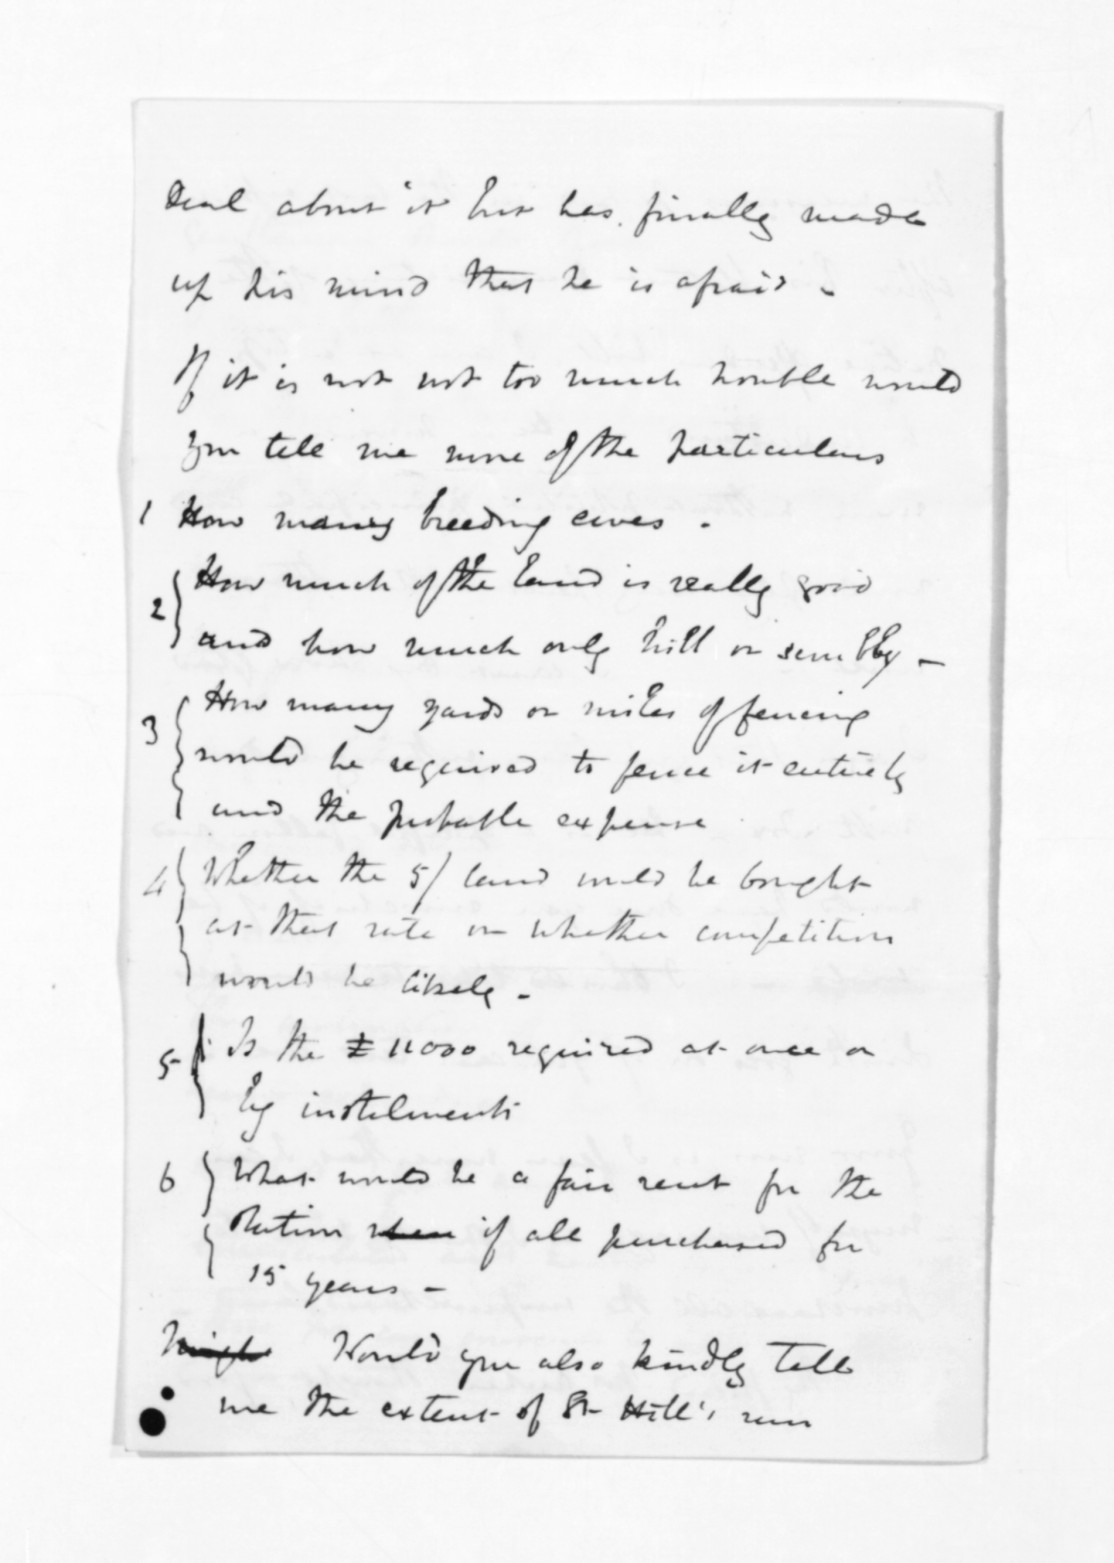 deal about it but has finally made
up his mind that he is afraid -
If it is not not too much trouble would
you tell me more of the particulars
1 How many breeding ewes .
2 How much of the land is really good
and how much only hill or scrubby -
3 How many yards or miles of fencing
would be required to fence it entirely
and the probable expense
4 Whether the 5/ land could be bought
at that rate or whether competition
would be likely -
5 Is the £11000 required at once or
by instalments
6 What would be a fair rent for the
station when if all purchased for
15 years -
Might Would you also kindly tell
me the extent of St Hill's run